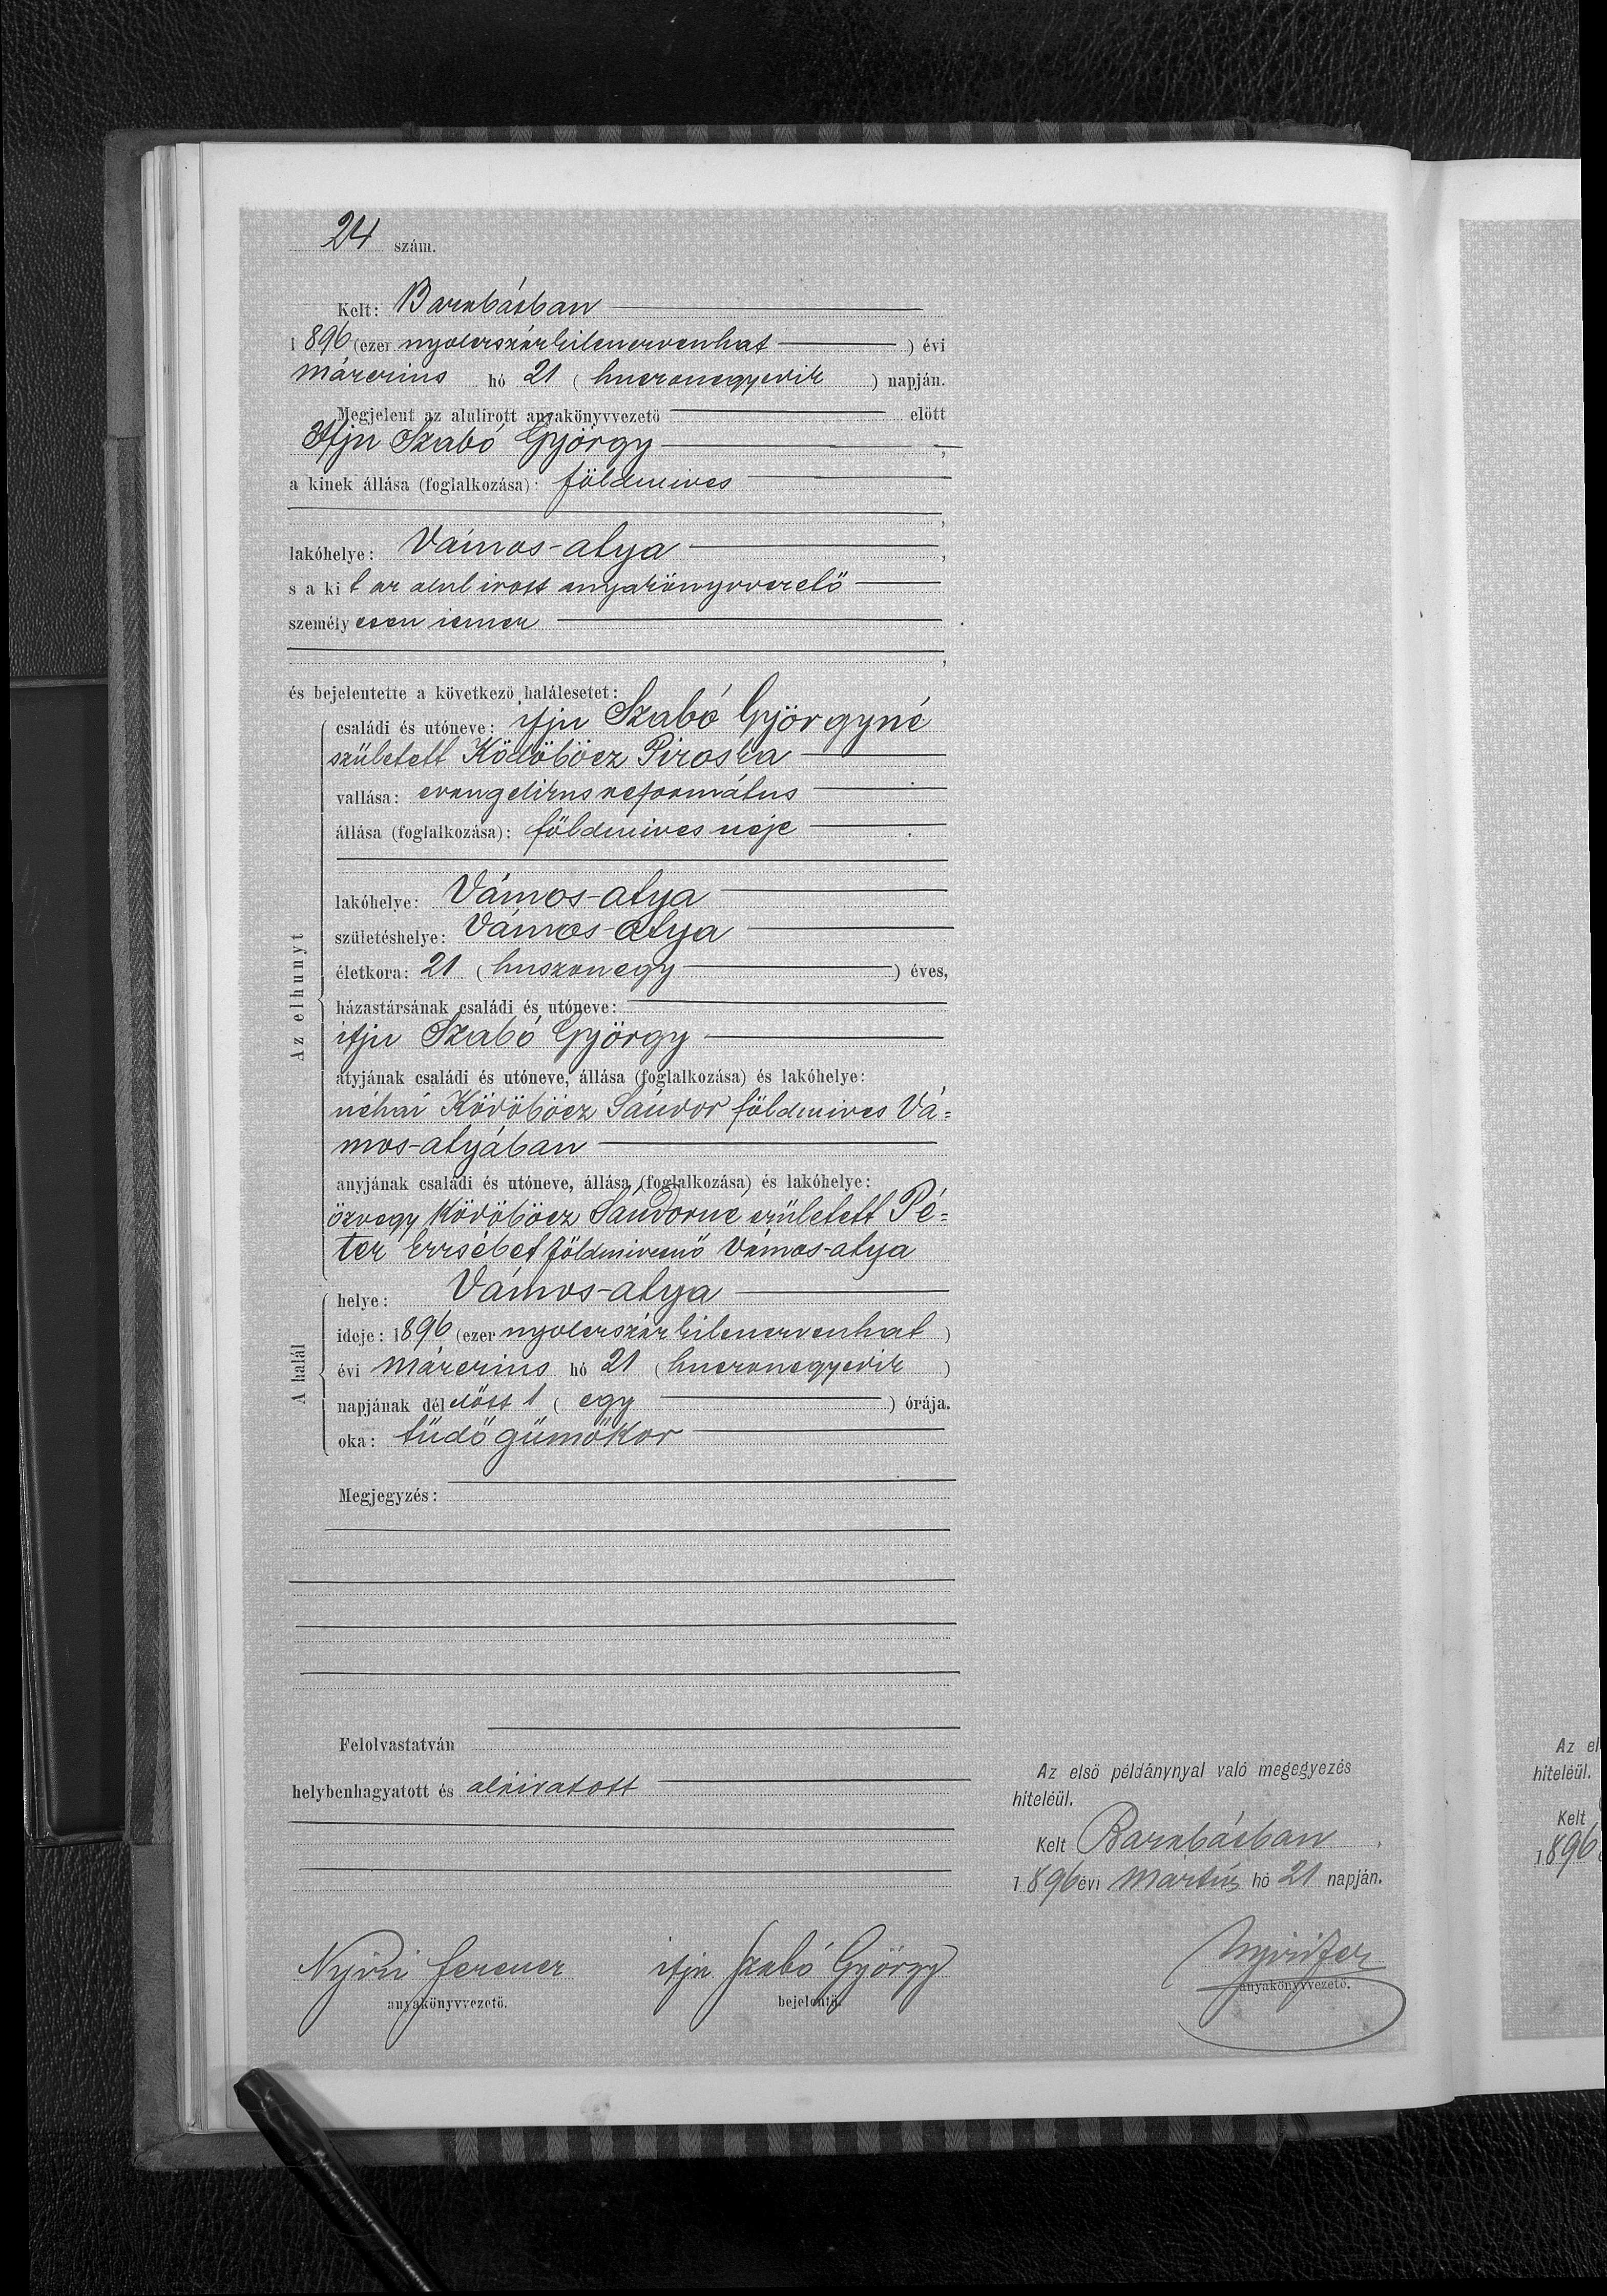 24 szám.
Kelt: Barabásban
1896 (ezer nyolczszázkilenczvenhat) évi
márczius hó 21 (huszonegyedik) napján.
Megjelent az alulirott anyakönyvvezető előtt
Ifju Szabó György,
a kinek állása (foglalkozása): földmives
,
lakóhelye: Vámos-atya,
s a kit az alulirott anyakönyvvezető
személyesen ismer.
,
és bejelentette a következő halálesetet:
Az elhunyt
családi és utóneve: ifju Szabó Györgyné
született Ködöböcz Piroska
vallása: evangelikus református
állása (foglalkozása): földmives neje
lakóhelye: Vámos-atya
születéshelye: Vámos-atya
életkora: 21 (huszonegy) éves,
házastársának családi és utóneve:
ifju Szabó György
atyjának családi és utóneve, állása (foglalkozása) és lakóhelye:
néhai Ködöböcz Sándor földmives Vá=
mos-atyában
anyjának családi és utóneve, állása (foglalkozása) és lakóhelye:
özvegy Ködöböcz Sándorné született Pé=
ter Erzsébet földmivesnő Vámos-atya
A halál
helye: Vámos-atya
ideje: 1896 (ezer nyolczszázkilenczvenhat)
évi márczius hó 21 (huszonegyedik)
napjának délelőtt 1 (egy) órája.
oka: tüdő gümőkor
Megjegyzés:
Felolvastatván
helybenhagyatott és aláiratott
Az első példánynyal való megegyezés
hiteléül.
Kelt Barabásban,
1896 évi Martius hó 21 napján.
Nyiri Ferencz ifju Szabó György Nyiri Fer
anyakönyvvezető. bejelentő. anyakönyvvezető.
Az el
hiteléül.
Kelt
1896